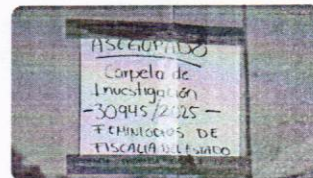 ASEGURADO
Carpeta de
Investigación
-30945/2025-
FEMINICIDIOS DE
FISCALIA DEL ESTADO